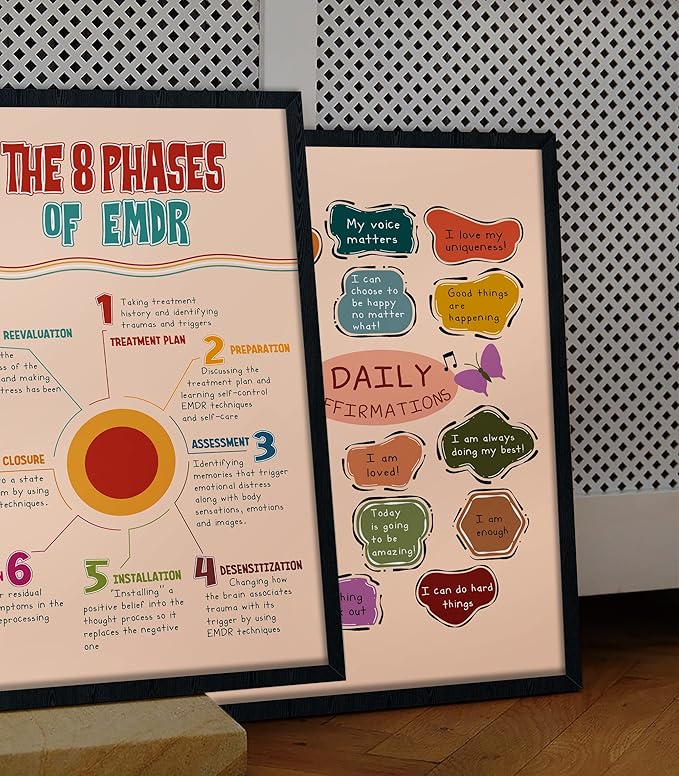 THE 8 PHASES
OF EMDR
1
Taking treatment
history and identifying
traumas and triggers
TREATMENT PLAN
2 PREPARATION
Discussing the
treatment plan and
learning self-control
EMDR techniques
and self-care
ASSESSMENT 3
Identifying
memories that trigger
emotional distress
along with body
sensations, emotions
and images.
4 DESENSITIZATION
Changing how
the brain associates
trauma with its
trigger by using
EMDR techniques
5 INSTALLATION
"Installing" a
positive belief into the
thought process so it
replaces the negative
one
6
residual
in the
CLOSURE
to a state
by using
REEVALUATION
the
of the
and making
has been
My voice
matters
I love my
uniqueness!
I can
choose to
be happy
no matter
what!
Good things
are
happening
DAILY
I am
loved!
I am always
doing my best!
Today
is going
to be
amazing!
I am
enough
out
I can do hard
things